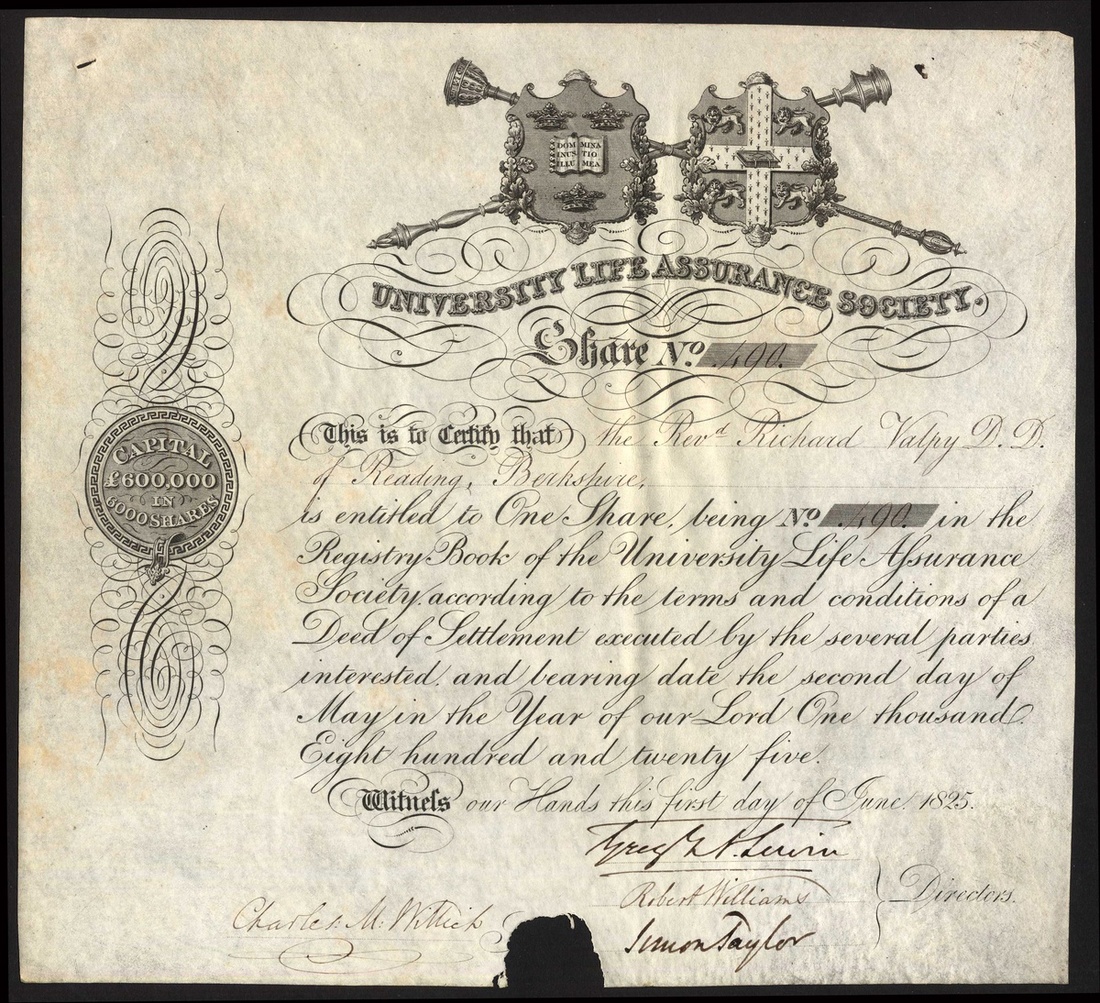 DOMINUS ILLU
MINATIO MEA
UNIVERSITY LIFE ASSURANCE SOCIETY.
Share No. 490.
CAPITAL
£600,000
IN
6000 SHARES
This is to Certify that the Revd Richard Valpy D. D.
of Reading, Berkshire,
is entitled to One Share, being No. 490. in the
Registry Book of the University Life Aſsurance
Society, according to the terms and conditions of a
Deed of Settlement executed by the several parties
interested, and bearing date the second day of
May in the Year of our Lord One thousand
Eight hundred and twenty five.
Witneſs our Hands this first day of June, 1825.
Lewin
Robert Williams
Directors.
Charles M. Willich
Simon Taylor